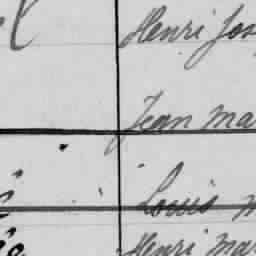 Henri Jos
Jean Ma
Louis M
Henri Mar